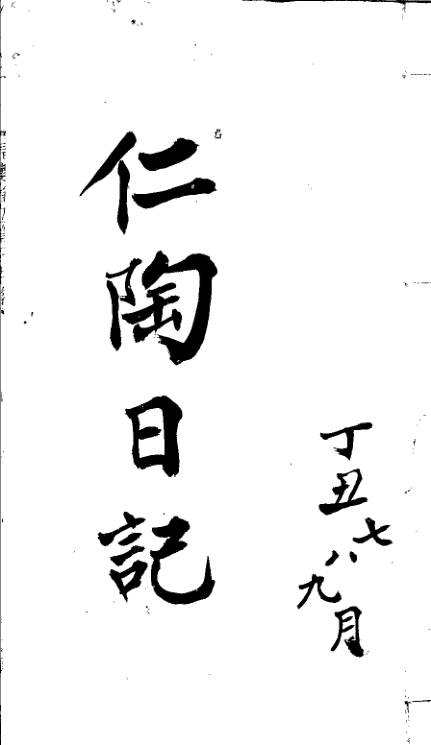 丁丑七八九月
仁陶日記